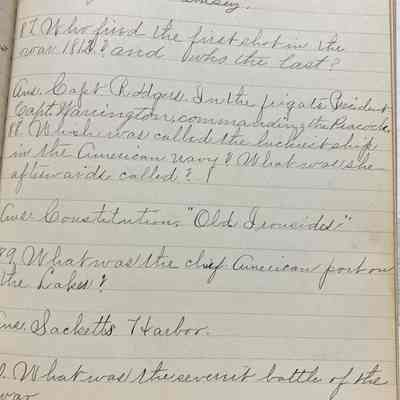 87. Who fired the first shot in the
war 1812? and who the last?
Ans. Capt Rodgers. In the frigate President
Capt Warrington, commanding the Peacock.
88. Which was called the luckiest ship
in the American navy? What was she
afterwards called?
Ans. Constitution, "Old Ironsides"
89. What was the chief American port on
the Lakes?
Ans. Sacketts Harbor.
What was the severest battle of the
war